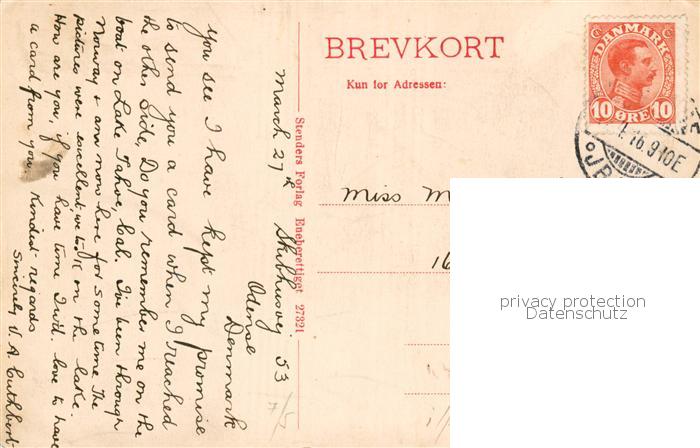 BREVKORT
Kun for Adressen:
DANMARK
10 ØRE 10
16.9-10E
Miss M
16
privacy protection
Datenschutz
Stenders Forlag Eneberettiget 27321
March 27th Skibhusvej 53
Odense
Denmark
You see I have kept my promise
to send you a card when I reached
the other side, Do you remember me on the
boat on Lake Tahoe, Cal. I've been through
Norway & am now here for some time The
pictures were excellent we took on the lake.
How are you, if you have time I wd. love to have
a card from you. Kindest regards
Sincerely V. A. Cuthbert